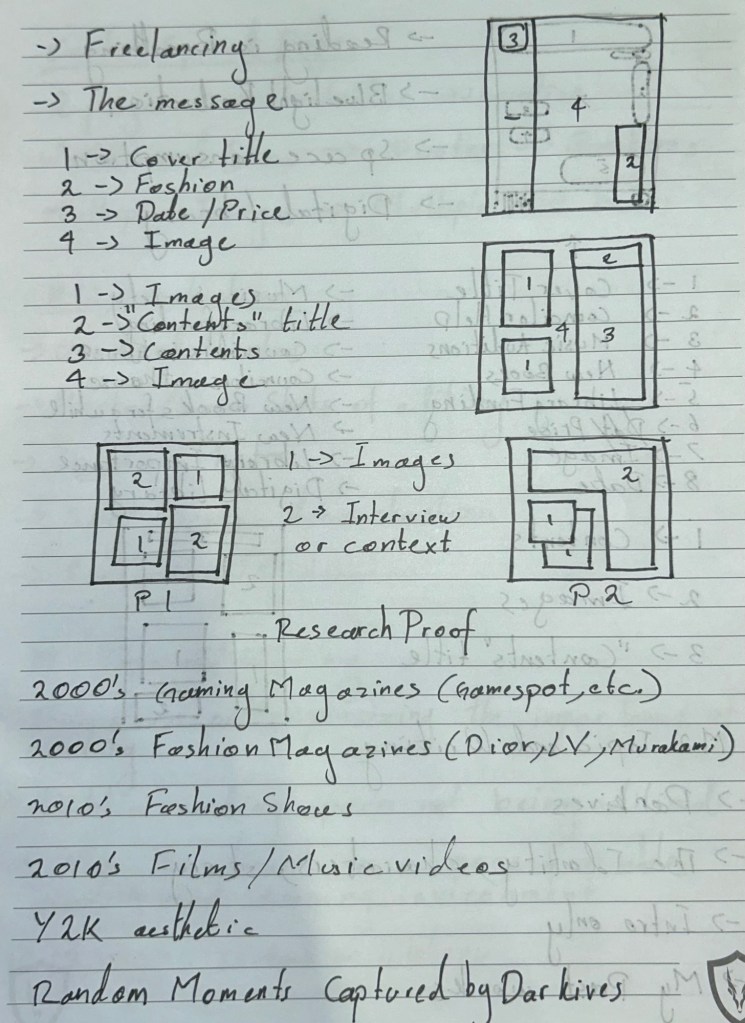 -> Freelancing
-> The message
1 -> Cover title
2 -> Fashion
3 -> Date/Price
4 -> Image
3
1
4
2
1 -> Images
2 -> "Contents" title
3 -> Contents
4 -> Image
1
2
4
3
1
2
1
1
2
P 1
1 -> Images
2 -> Interview
or context
2
1
1
P. 2
Research Proof
2000's Gaming Magazines (Gamespot, etc.)
2000's Fashion Magazines (Dior, LV, Murakami)
2010's Fashion Shows
2010's Films/Music videos
Y2K aesthetic
Random Moments Captured by Darkives